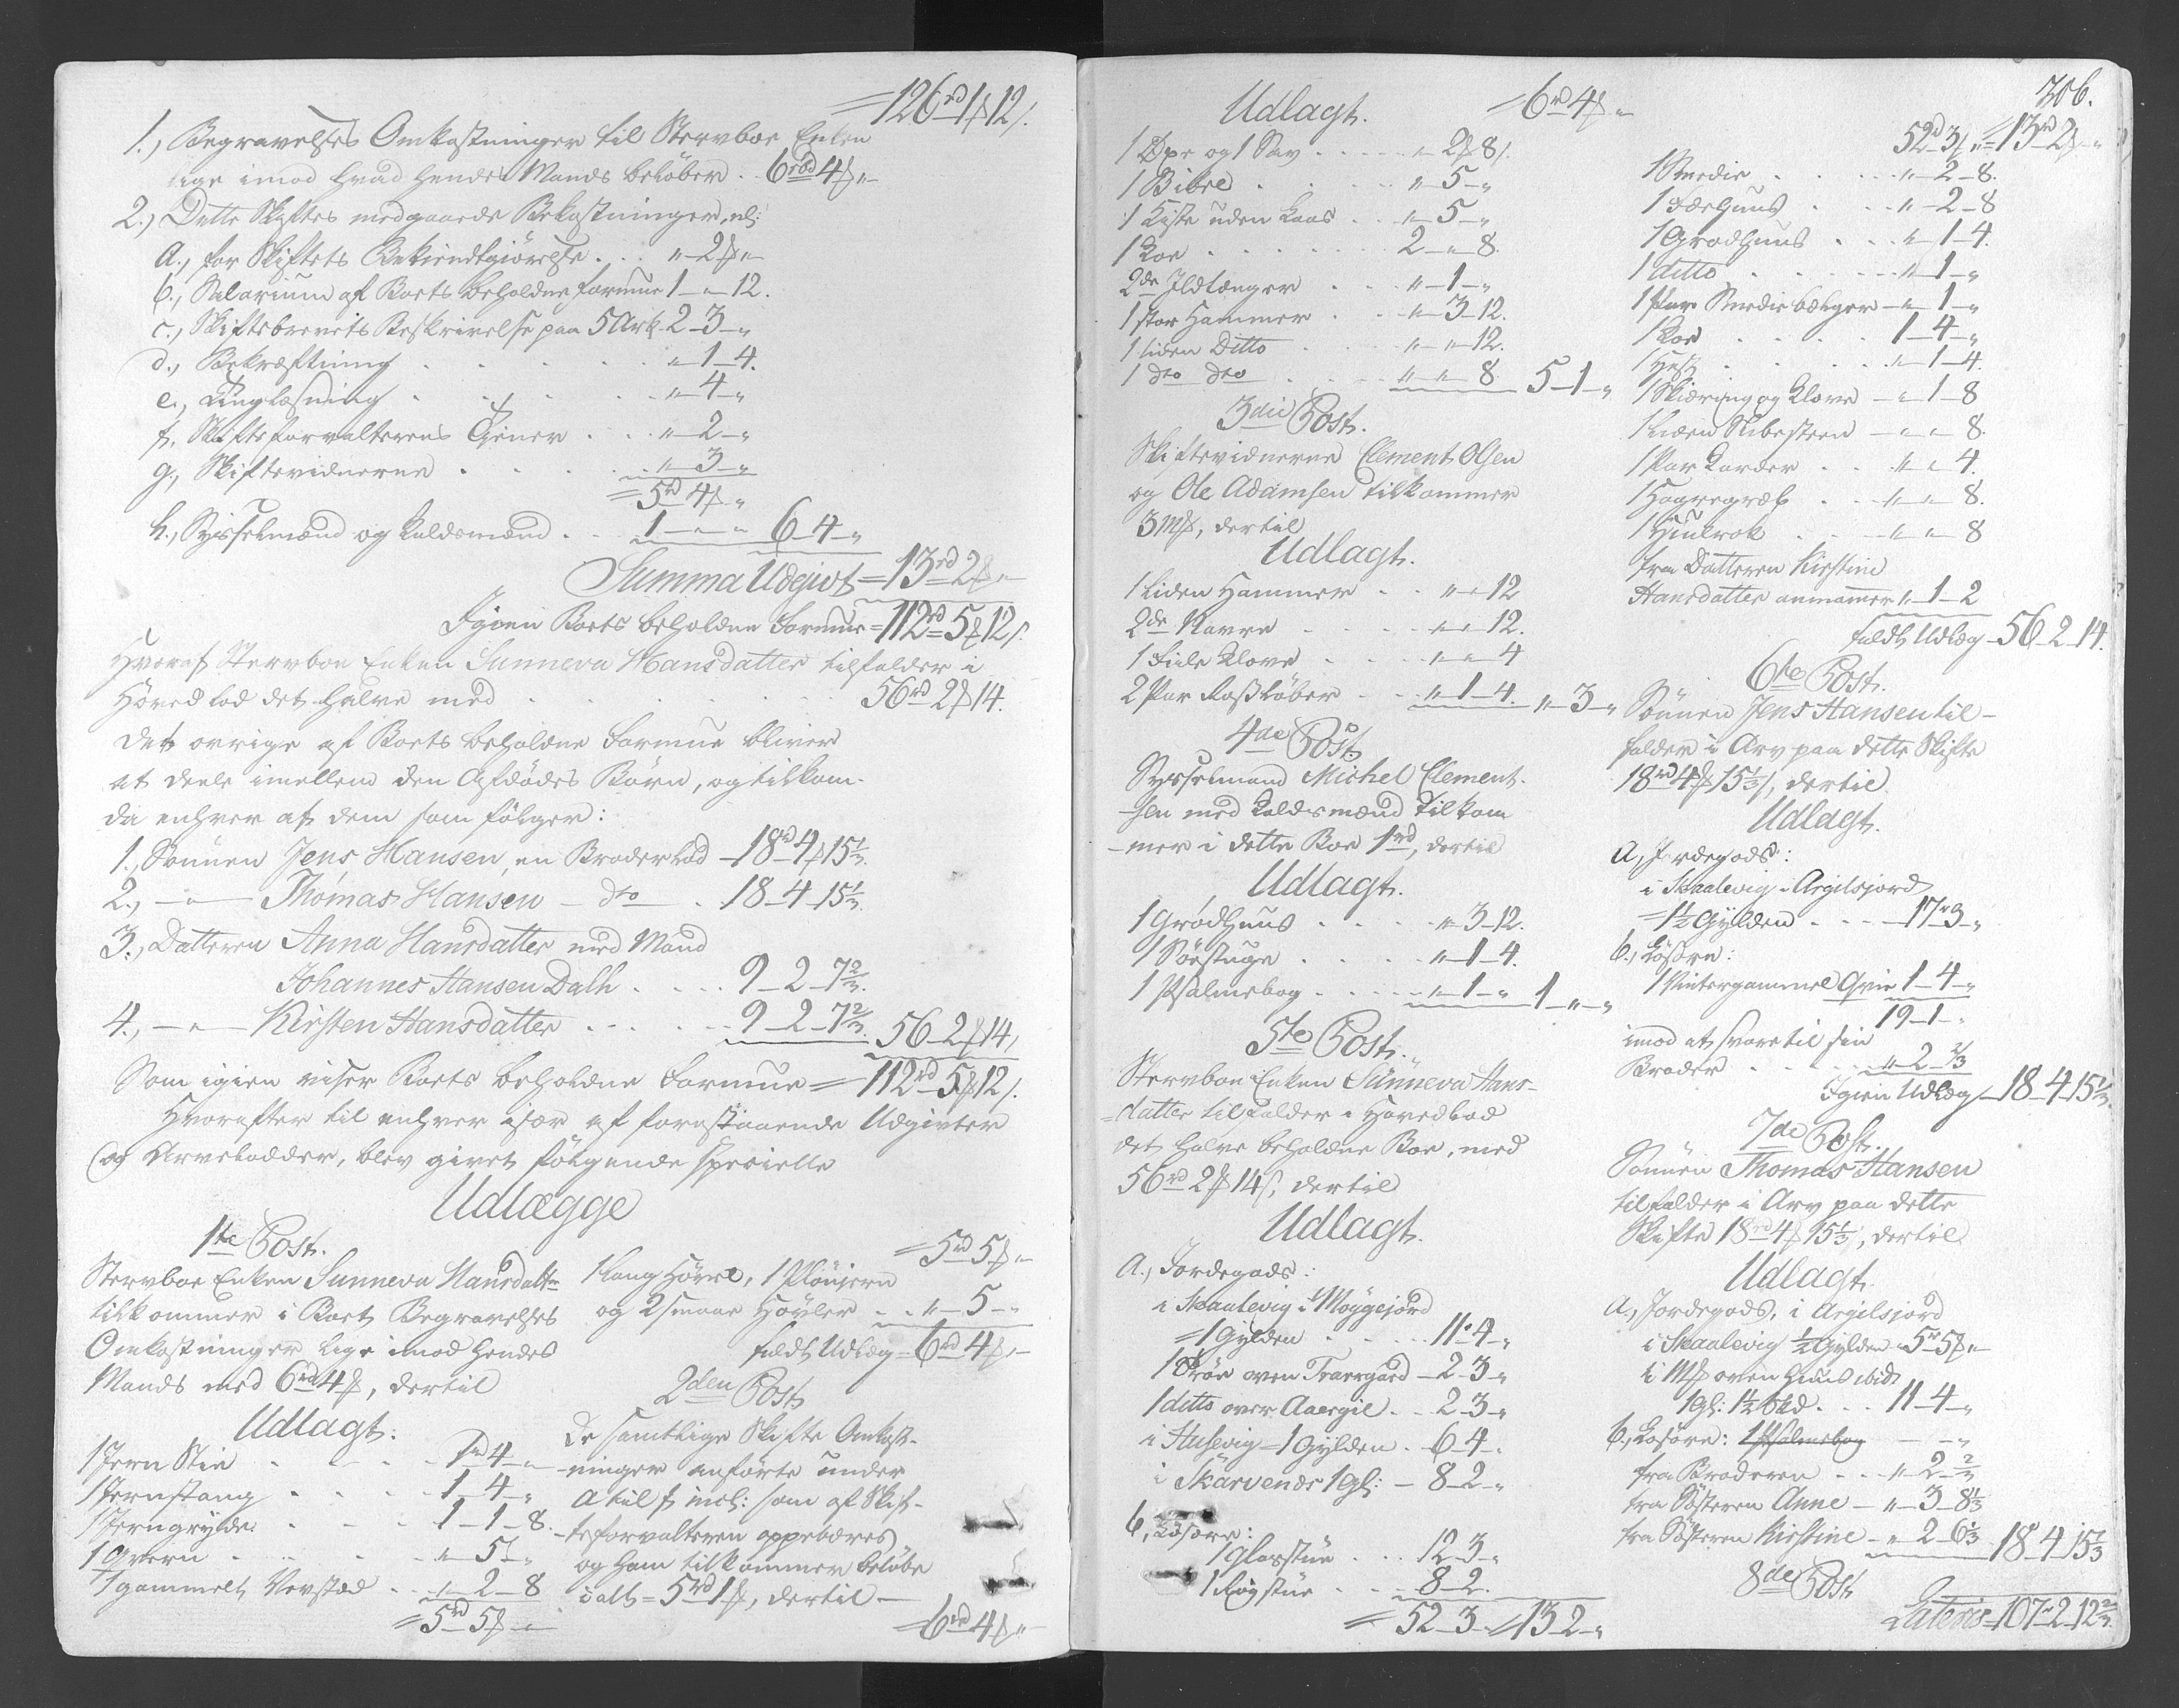 =126rd 1ß 12/.
1., Begravelses Omkostninger til Stervboe Enken
lige imod hvad hendes Mands beløber . . 6rbd 4ß „
2., Dette Skiftes medgaaede Bekostninger, nl:
a., for Skiftets Bekiendtgiørelse . . . „ 2ß „
b., Salarium af Boets beholdne formue 1 „ 12.
c., Skiftebrevets Beskrivelse paa 5 Ark 2 3 „
d., Bekræftning . . . . „ 1 4.
e., Tinglæsning . . . . „ 4 „
f., Skifteforvalterens Tjener . . . „ 2 „
g., Skiftevidnerne . . . . „ 3 „
=5rd 4ß „
h., Sysselmænd og kaldsmænd . . 1 „ „ 6 4 „
Summa Udgivt =13rd 2ß „
Igien Boets beholdne Formue =112rd 5ß 12/.
Hvoraf Stervboe Enken Sunneva Hansdatter tilfalder i
Hoved lod det halve med . . . . 56rd 2ß 14.
det øvrige af Boets beholdne Formue bliver
at deele imellem den Afdødes Børn, og tilkom-
da enhver af dem som følger:
1., Sønnen Jens Hansen, en Broderlod 18rd 4ß 15 1/3.
2., „ Thomas Hansen dto . 18 4 15 1/3.
3., Datteren Anna Hansdatter med Mand
Johannes Hansen Dalh . . . . 9 2 7 2/3.
4., „ Kirsten Hansdatter . . . . 9 2 7 2/3. 56 2ß 14/.
Som igien viser Boets beholdne Formue =112rd 5ß 12/.
Hvorefter til enhver især af forestaaende Udgivter
og Arvelodder, blev givet følgende specielle
Udlægge
1te Post.
Stervboe Enken Sunneva Hansdatter
tilkommer i Boet Begravelses
Omkostninger lige imod hendes
Mands med 6rd 4ß, dertil
Udlagt:
1 Jern Stie . . . 1rd 4 „
1 Jernstang . . . . 1 4 „
1 Jerngryde . . . 1 1 8.
1 Qvern . . . . „ 5 „
1 gammelt Vevstad . . „ 2 8
=5rd 5ß „
=5rd 5ß „
1 lang Høvel, 1 Pløujern
og 2 smaae Høvler . . „ 5 „
fuldt Udlæg =6rd 4ß „
2den Post.
De samtlige Skifte Omkost-
ninger anførte under
a til f incl: som af Skif-
teforvalteren oppebæres
og ham tilkommer beløbe
i alt =5rd 1ß, dertil
=6rd 4ß „
306.
Udlagt. =6rd 4ß „
1 Øxe og 1 Sav . . . . „ 2ß 8/.
1 Bibel . . . . „ 5 „
1 Kiste uden Laas . . „ 5 „
1 Koe . . . . . 2 „ 8.
2de Ildtænger . . . „ 1 „
1 stor Hammer . . „ 3 12.
1 liden Ditto . . . „ „ 12.
1 dto dto . . . „ „ 8. 5 1 „
3die Post.
Skiftevidnerne Clement Olsen
og Ole Adamsen tilkommer
3Mß, dertil
Udlagt.
1 liden Hammer . . „ „ 12
2de Navre . . . „ „ 12.
1 Fiele Klove . . . „ „ 4
2 Par . . „ 1 4. „ 3 „
4de Post.
Sysselmand Michel Clement-
sen med Kaldsmænd tilkom
mer i dette Boe 1rd, dertil
Udlagt.
1 Grødhuus . . . . „ 3 12.
1 . . . . „ 1 4.
1 Psalmebog . . . . „ 1 „ 1 „ „
5te Post.
Stervboe Enken Sunneva Hans-
datter tilfalder i Hovedlod
det halve beholdne Boe, med
56rd 2ß 14/, dertil
Udlagt.
A., Jordegods:
i Skaalevig i Moygejord
=1 Gylden . . . . 11r 4 „
1 Trøe oven Traergard 2 3 „
1 ditto over Aaergil . . 2 3 „
i Husevig =1 Gylden . 6 4 „
i Skarvenæs 1 gl: 8 2 „
b., Løsøre:
1 Glasstue . . . 12 3 „
1 Røgstue . . . 8 2.
= 52 3 „ 13 2 „
52rd 3ß „ =13rd 2ß „
1 Smedie . . . „ 2 8.
1 Faarhuus . . . „ 2 8
1 Grødhuus . . . „ 1 4.
1 ditto . . . . „ 1 „
1 Par Smedie bælger „ 1 „
1 Koe . . . . 1 4 „
1 Hest . . . . „ 1 4.
1 Skiæring og Klove „ 1 8
1 liden Slibesteen „ „ 8.
1 Par Karder . . „ „ 4.
1 Høgregræb . . „ „ 8.
1 Hiulrok . . . „ „ 8
fra Datteren Kirstine
Hansdatter annammer „ 1 2
fuldt Udlæg 56 2 14.
6te Post.
Sønnen Jens Hansen til-
falder i Arv paa dette Skifte
18rd 4ß 15 1/3/, dertil
Udlagt.
A, Jordegods:
i Skaalevig i Argilsjord
=1 1/2 Gylden . . . 17r 3 „
b., Løsøre:
1 Vintergammel Qvie 1 4 „
19 1 „
imod at svare til sin
Broder . . . . „ 2 2/3
Igien Udlæg 18 4 15 1/3.
7de Post.
Sønnen Thomas Hansen
tilfalder i Arv paa dette
Skifte 18rd 4ß 15 1/3, dertil
Udlagt.
A., Jordegods, i Argilsjord
i Skaalevig 1/2 Gylden 5r 5ß „
i oven Huus ibid:
1 gl: 1 1/2 skd . . . 11 4 „
b., Løsøre: 1 Psalmebog „
fra Broderen . . . „ 2 2/3
fra Søsteren Anne „ 3 8 1/3
fra Søsteren Kirstine „ 2 6 1/3 18 4 15 1/3
8de Post.
Lateris 107r 2 12 2/3.